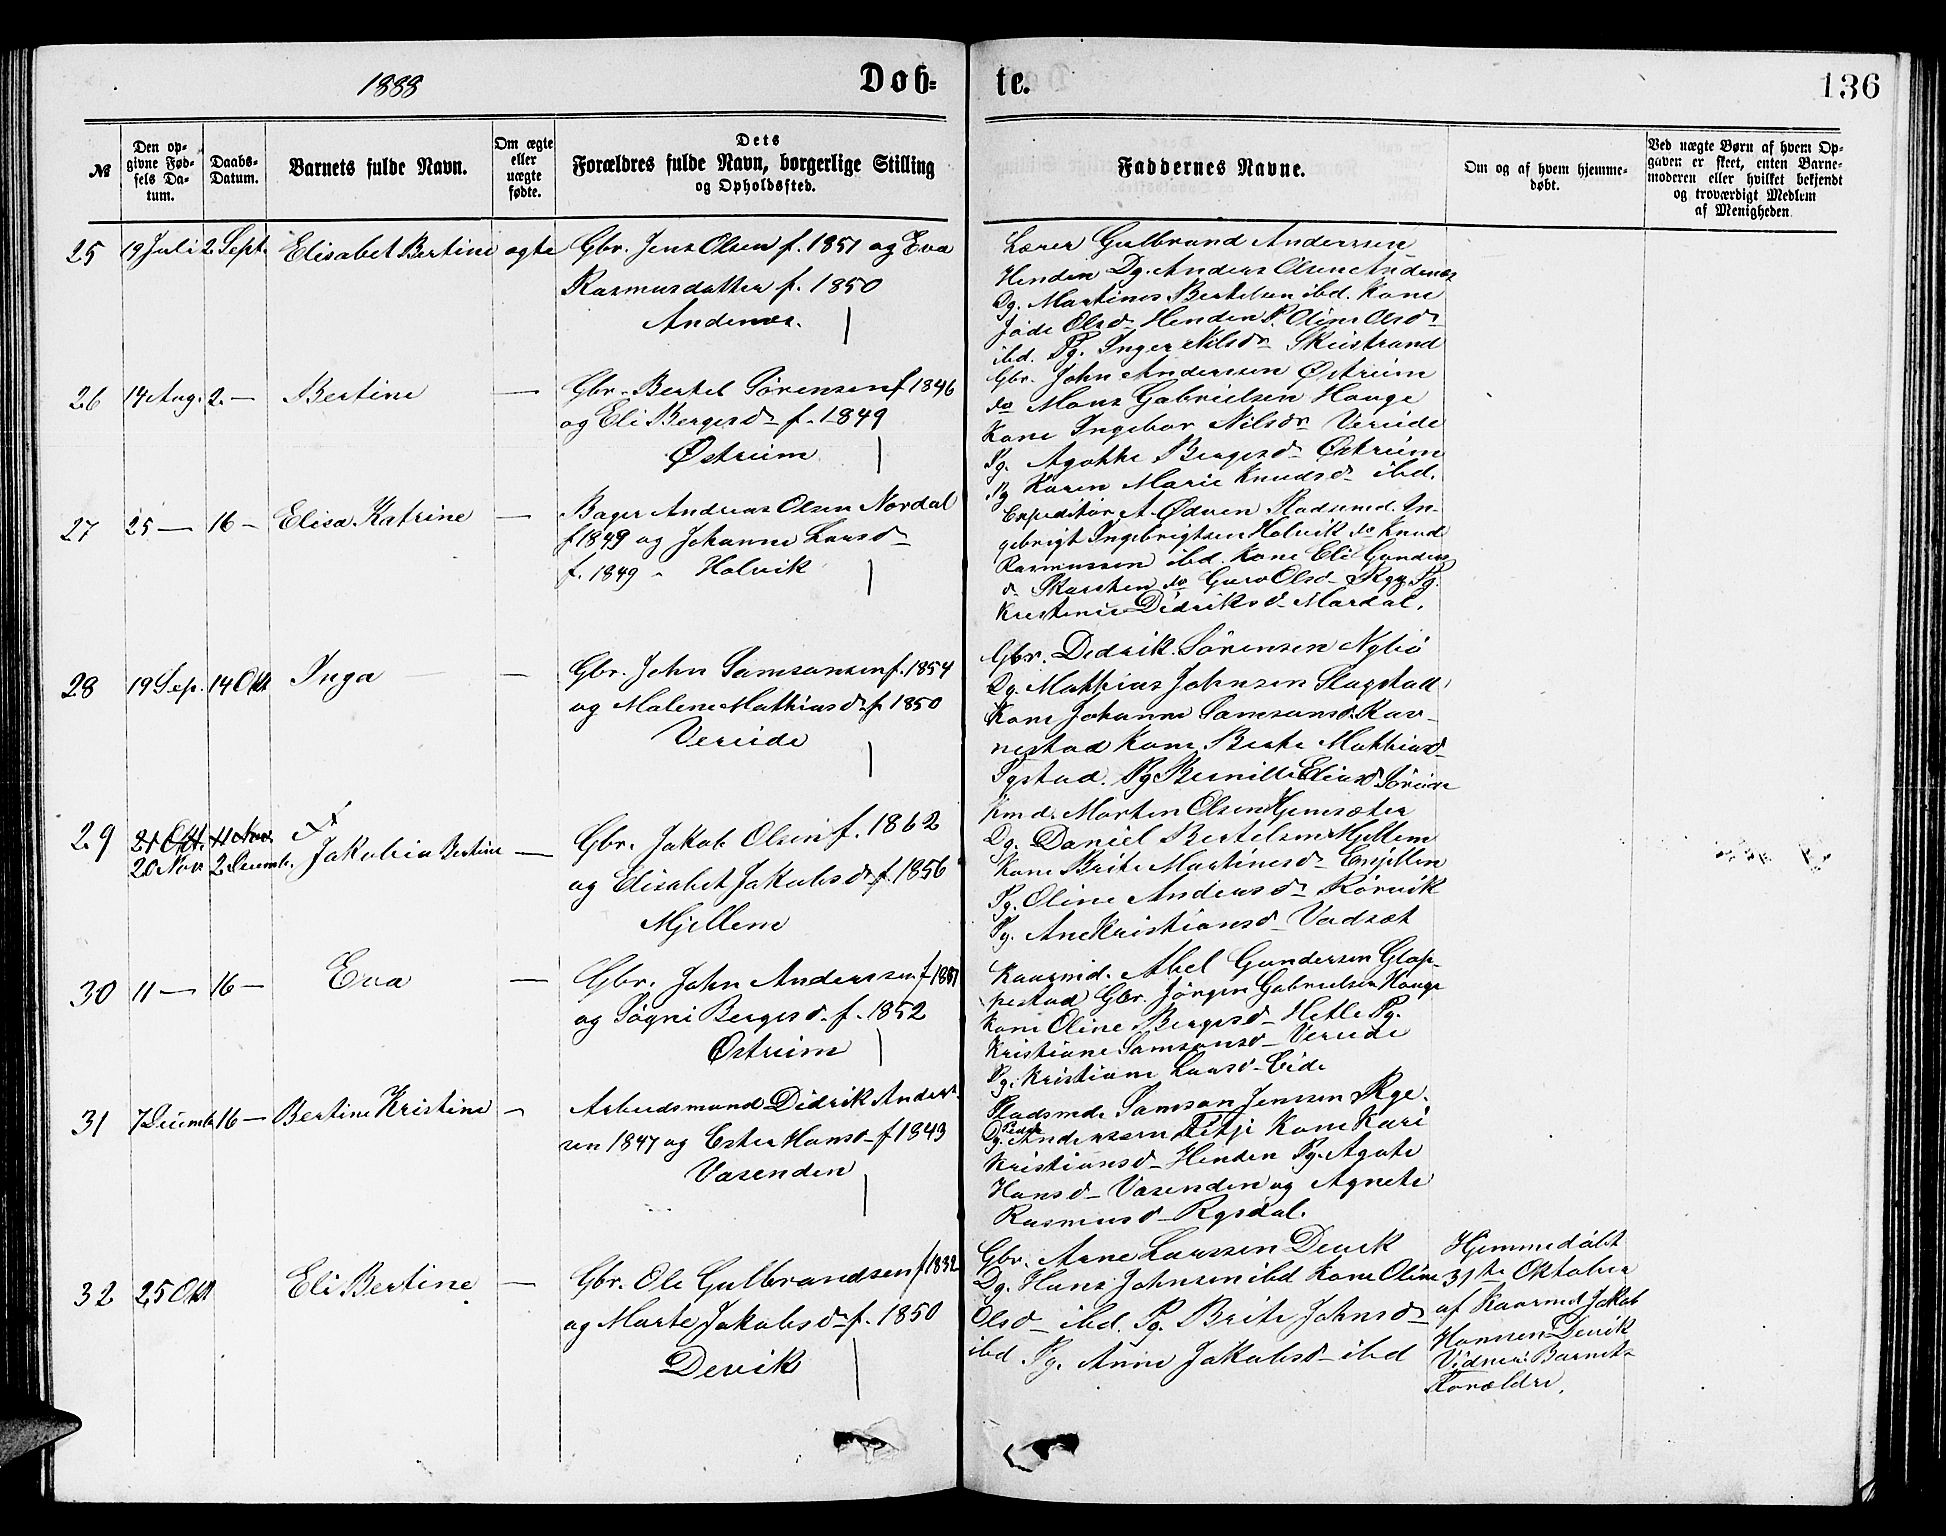 1888
Døb-
te.
136
№
Den op-
givne Fød-
sels Da-
tum.
Daabs-
Datum.
Barnets fulde Navn.
Om ægte
eller
uægte
fødte.
Dets
Forældres fulde Navn, borgerlige Stilling
og Opholdssted.
Faddernes Navne.
Om og af hvem hjemme-
døbt.
Ved uægte Børn af hvem Op-
gaven er skeet, enten Barne-
moderen eller hvilket bekjendt
og troværdigt Medlem
af Menigheden
25 19 Juli 2 Sept. Elisabet Bertine ægte
Gbr. Jens Olsen f. 1851 og Eva
Rasmusdatter f. 1850
Andenæs.
Lærer Gulbrand Anderssen
Henden Dg. Anders Olsen Andenæs
Dg. Martines Bertelsen ibd. Kone
Jøde Olsd Henden P. Oline Olsd
ibd. Pg. Inger Nilsd Skeistrand
26 14 Aug. 2. — Bertine —
Gbr. Bertel Sørensen f 1846
og Eli Bergesd f. 1849
Østreim
Gbr. John Anderssen Østreim
do Mons Gabrielsen Hauge
Kone Ingebor Nilsdr Vereide
Pg. Agathe Bergesd Østreim
Pg Karen Marie Knudsd ibd.
27 25 — 16 — Elisa Katrine —
Bager Andreas Olsen Nordal
f 1849 og Johanne Larsd
f. 1849 Holvik
Expeditør A. Ødven Stadsmd. In-
gebrigt Ingebrigtsen Holvik do Knud
Rasmussen ibd. Kone Eli Gunders
d. Karsten do Guro Olsd Ryg Pg.
Kristense Didriksd Mardal.
28 19 Sep. 14 Okt Inga —
Gbr. John Samsonsen f. 1854
og Malene Mathiasd f. 1850
Vereide
Gbr. Didrik Sørensen Nybø
Dg. Mathias Johnsen Slagstad
Kone Johanne Samsonsd. Rav-
nestad Kone Berte Mathiasd
Rystad. Pg Pernille Eliasd Søreide
29 21 Okt. 11 Nov.
20 Nov 2 Decemb. Jakobia Bertine —
Gbr. Jakob Olsen f. 1862
og Elisabet Jakobsd f. 1856
Hjellem
Kmd. Morten Olsen Hjemsæter
Dg. Daniel Bertelsen Hjellem
Kone Brite Martinesd Enjellen
Pg. Oline Andersd Rørvik
Pg. Ane Kristiansd Vadsæt
30 11 — 16 — Eva —
Gbr. John Anderssen f 1851
og Søgni Bergesd. f. 1852
Østreim
Kaarmd. Abel Gundersen Glop-
pestad Gbr. Jørgen Gabrielsen Hauge
Kone Oline Bergesd Hetle Pg.
Kristiane Samsonsd Vereide
Pg. Kristiane Larsd Eide
31 7 Decemb 16 — Bertine Kristine —
Arbeidsmand Didrik Anders-
sen 1847 og Ester Hansd f 1843
Vasenden
Pladsmd. Samson Jenssen Ryg.
Dg. Peder Anderssen Fitje Kone Kari
Kristiansd Henden Pg. Agate
Hansd Vasenden og Agnete
Rasmusd Rysdal.
32 25 Okt Eli Bertine —
Gbr. Ole Gulbrandsen f 1832
og Marte Jakobsd f. 1850
Devik
Gbr. Arne Larssen Devik
Dg. Hans Johnsen ibd Kone Oline
Olsd ibd. Pg. Brite Johnsd
ibd. Pg. Anne Jakobsd ibd
Hjemmedøbt
31te Oktober
af Kaarmd Jakob
Hanssen Devik
Vidner: Barnets
Forældre.